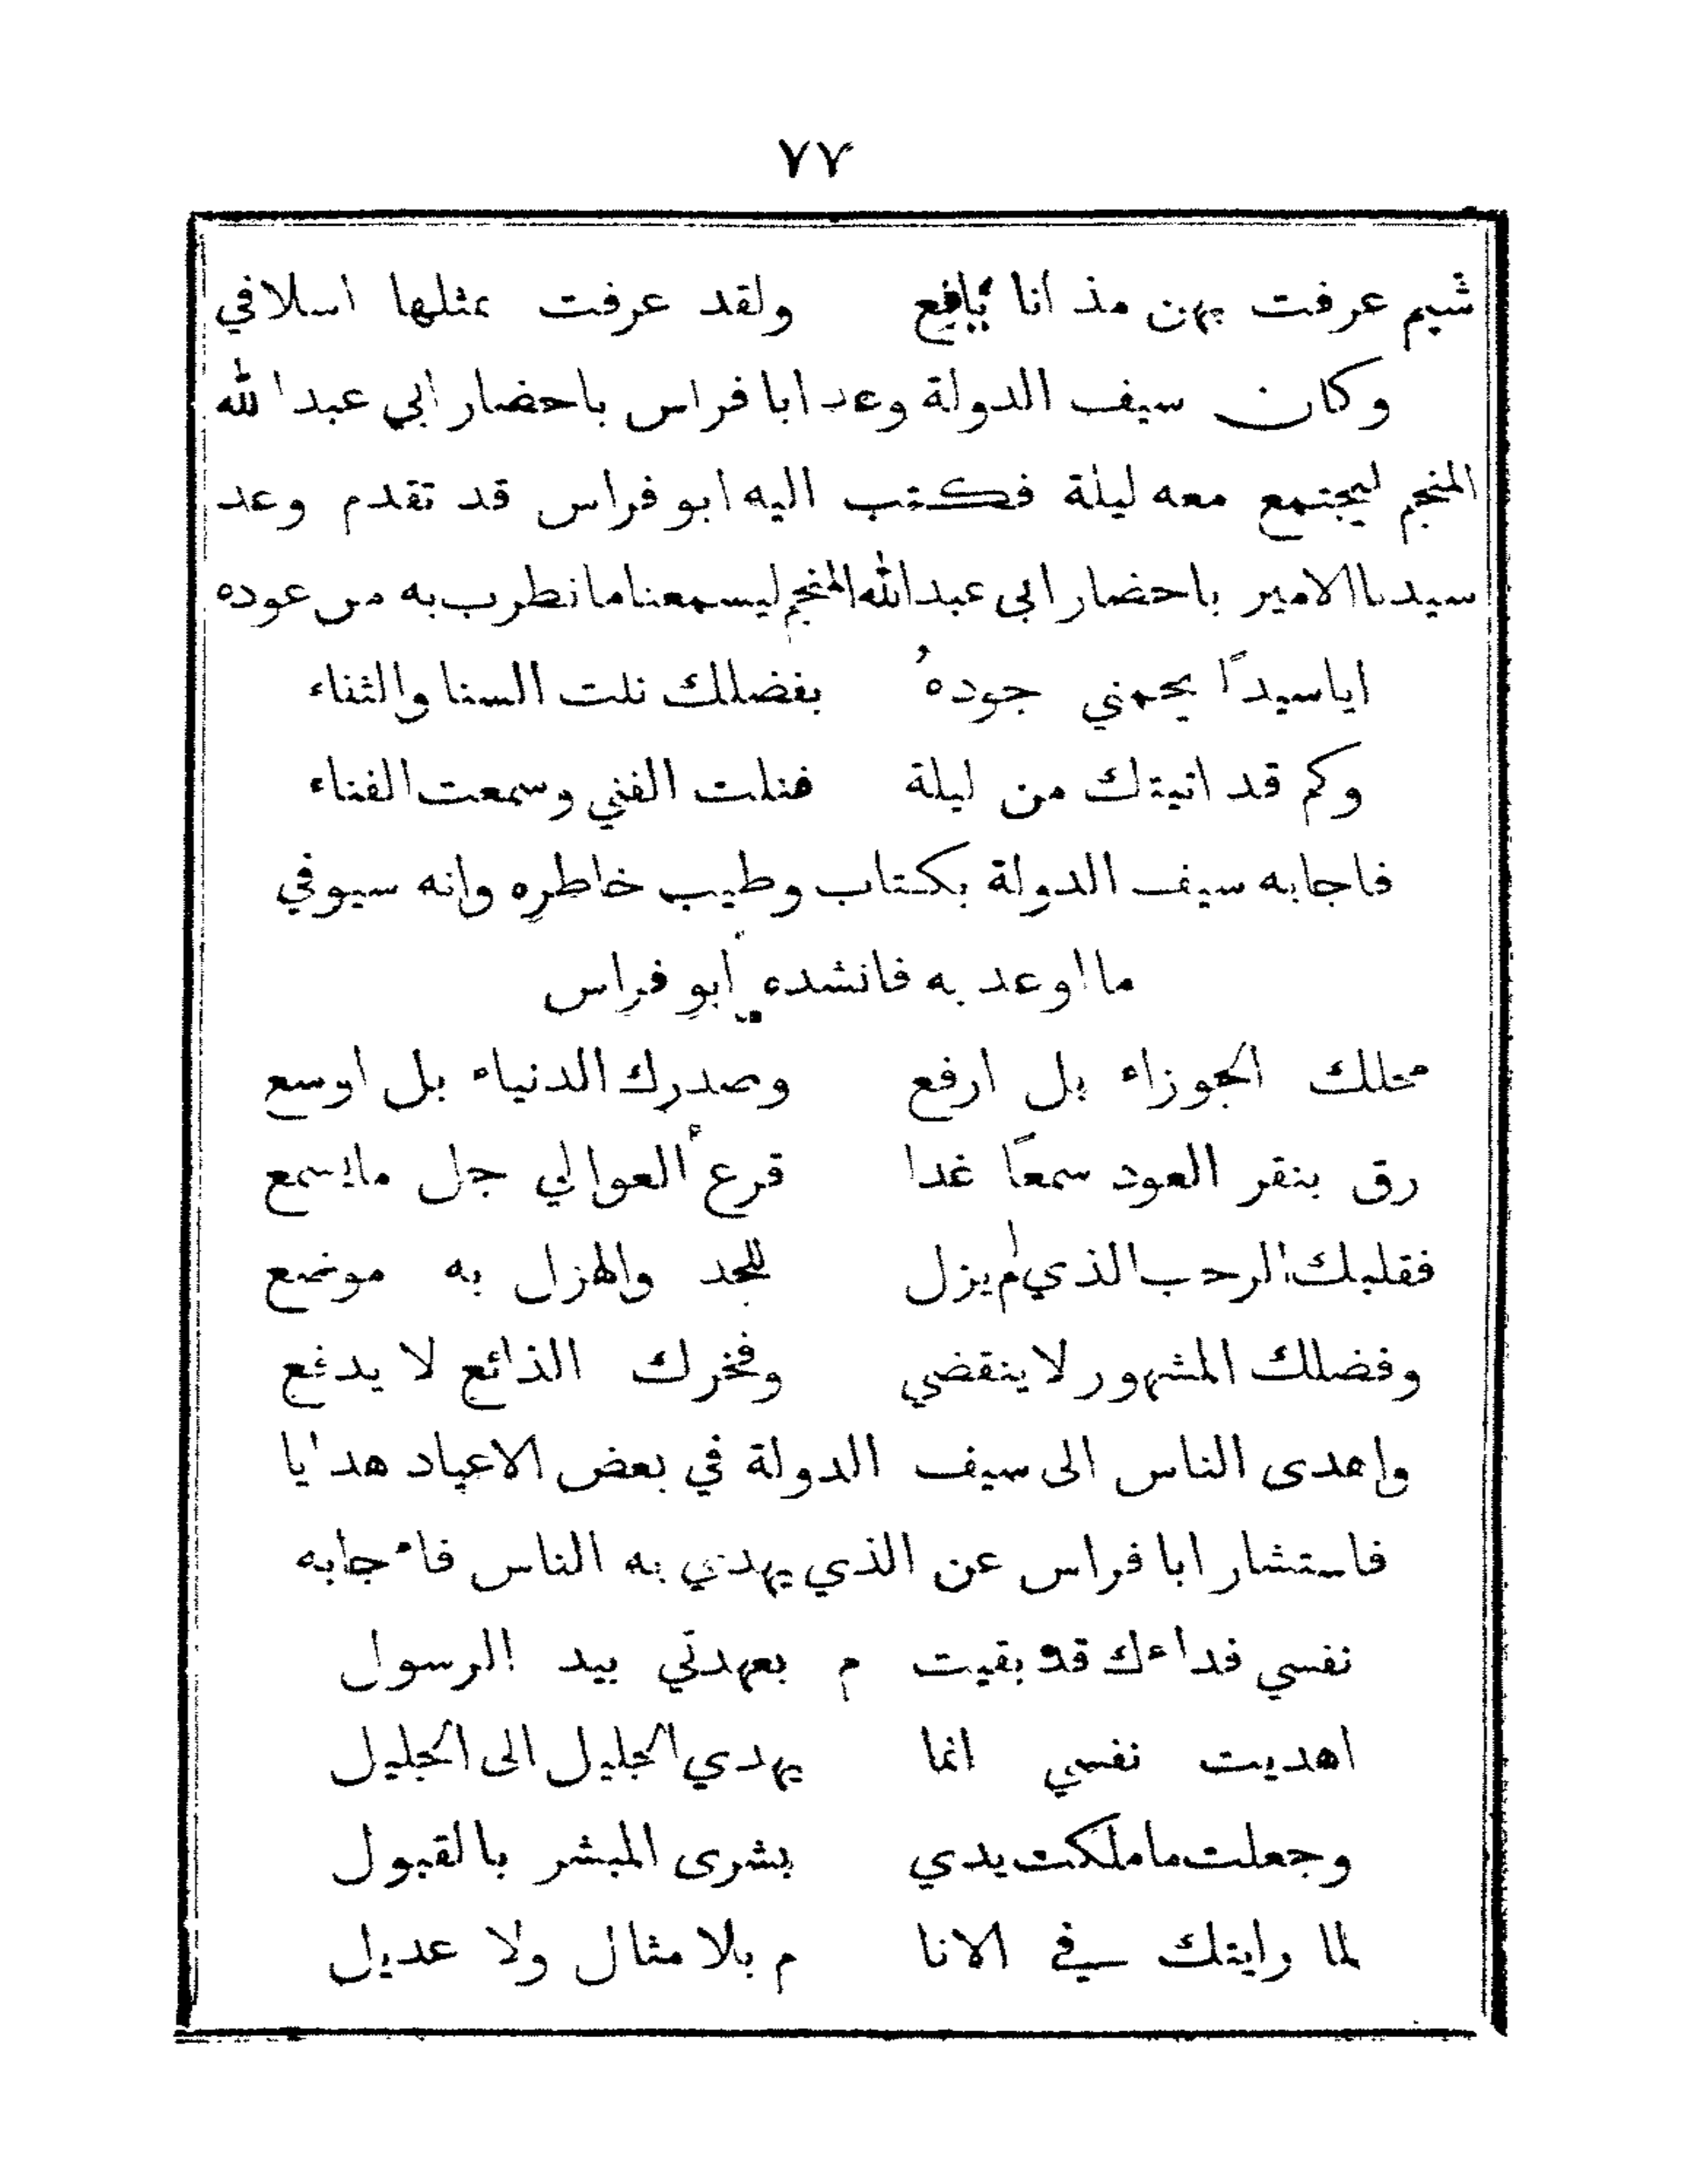 ٧٧
شيم عرفت بهن مذ انا يافع ولقد عرفت بمثلها اسلافي
وكان سيف الدولة وعد ابا فراس باحضار ابي عبد الله
المنجم ليجتمع معه ليلة فكتب اليه ابو فراس قد تقدم وعد
سيدنا الامير باحضار ابى عبد الله المنجم ليسمعنا ما نطرب به من عوده
ايا سيداً يحمني جودهُ بفضلك نلت السنا والثناء
وكم قد اتيتك من ليلة فنلت الغني وسمعت الغناء
فاجابه سيف الدولة بكتاب وطيب خاطره وانه سيوفي
ما اوعد به فانشده ابو فراس
محلك الجوزاء بل ارفع وصدرك الدنياء بل اوسع
رق بنقر العود سمعاً غدا قرع العوالي جل ما يسمع
فقلبك الرحب الذي لم يزل للجد والهزل به موضع
وفضلك المشهور لا ينقضي وفخرك الذائع لا يدفع
واهدى الناس الى سيف الدولة في بعض الاعياد هدايا
فاستشار ابا فراس عن الذي يهدي به الناس فاجابه
نفسي فداءك قد بقيت م بعهدتي بيد الرسول
اهديت نفسي انما يهدي الجليل الى الجليل
وجعلت ما ملكت يدي بشرى المبشر بالقبول
لما رايتك في الانا م بلا مثال ولا عديل